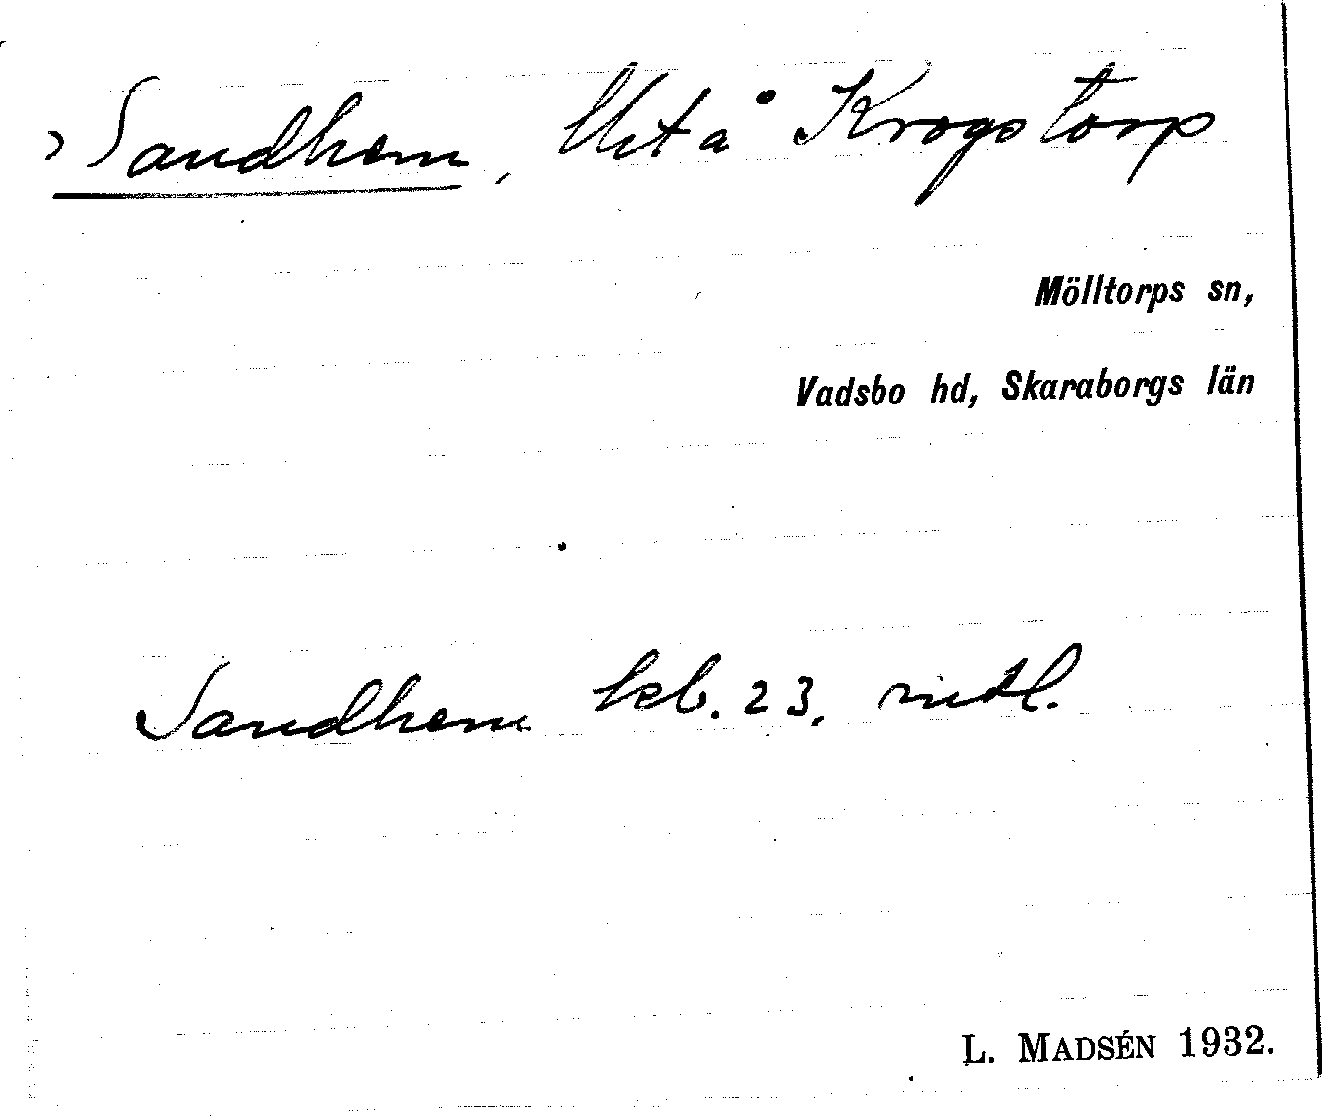 Sandhem, lht å Krogstorp
Mölltorps sn,
Vadsbo hd, Skaraborgs län
Sandhem kb. 23, mtl.
L. MADSÉN 1932.